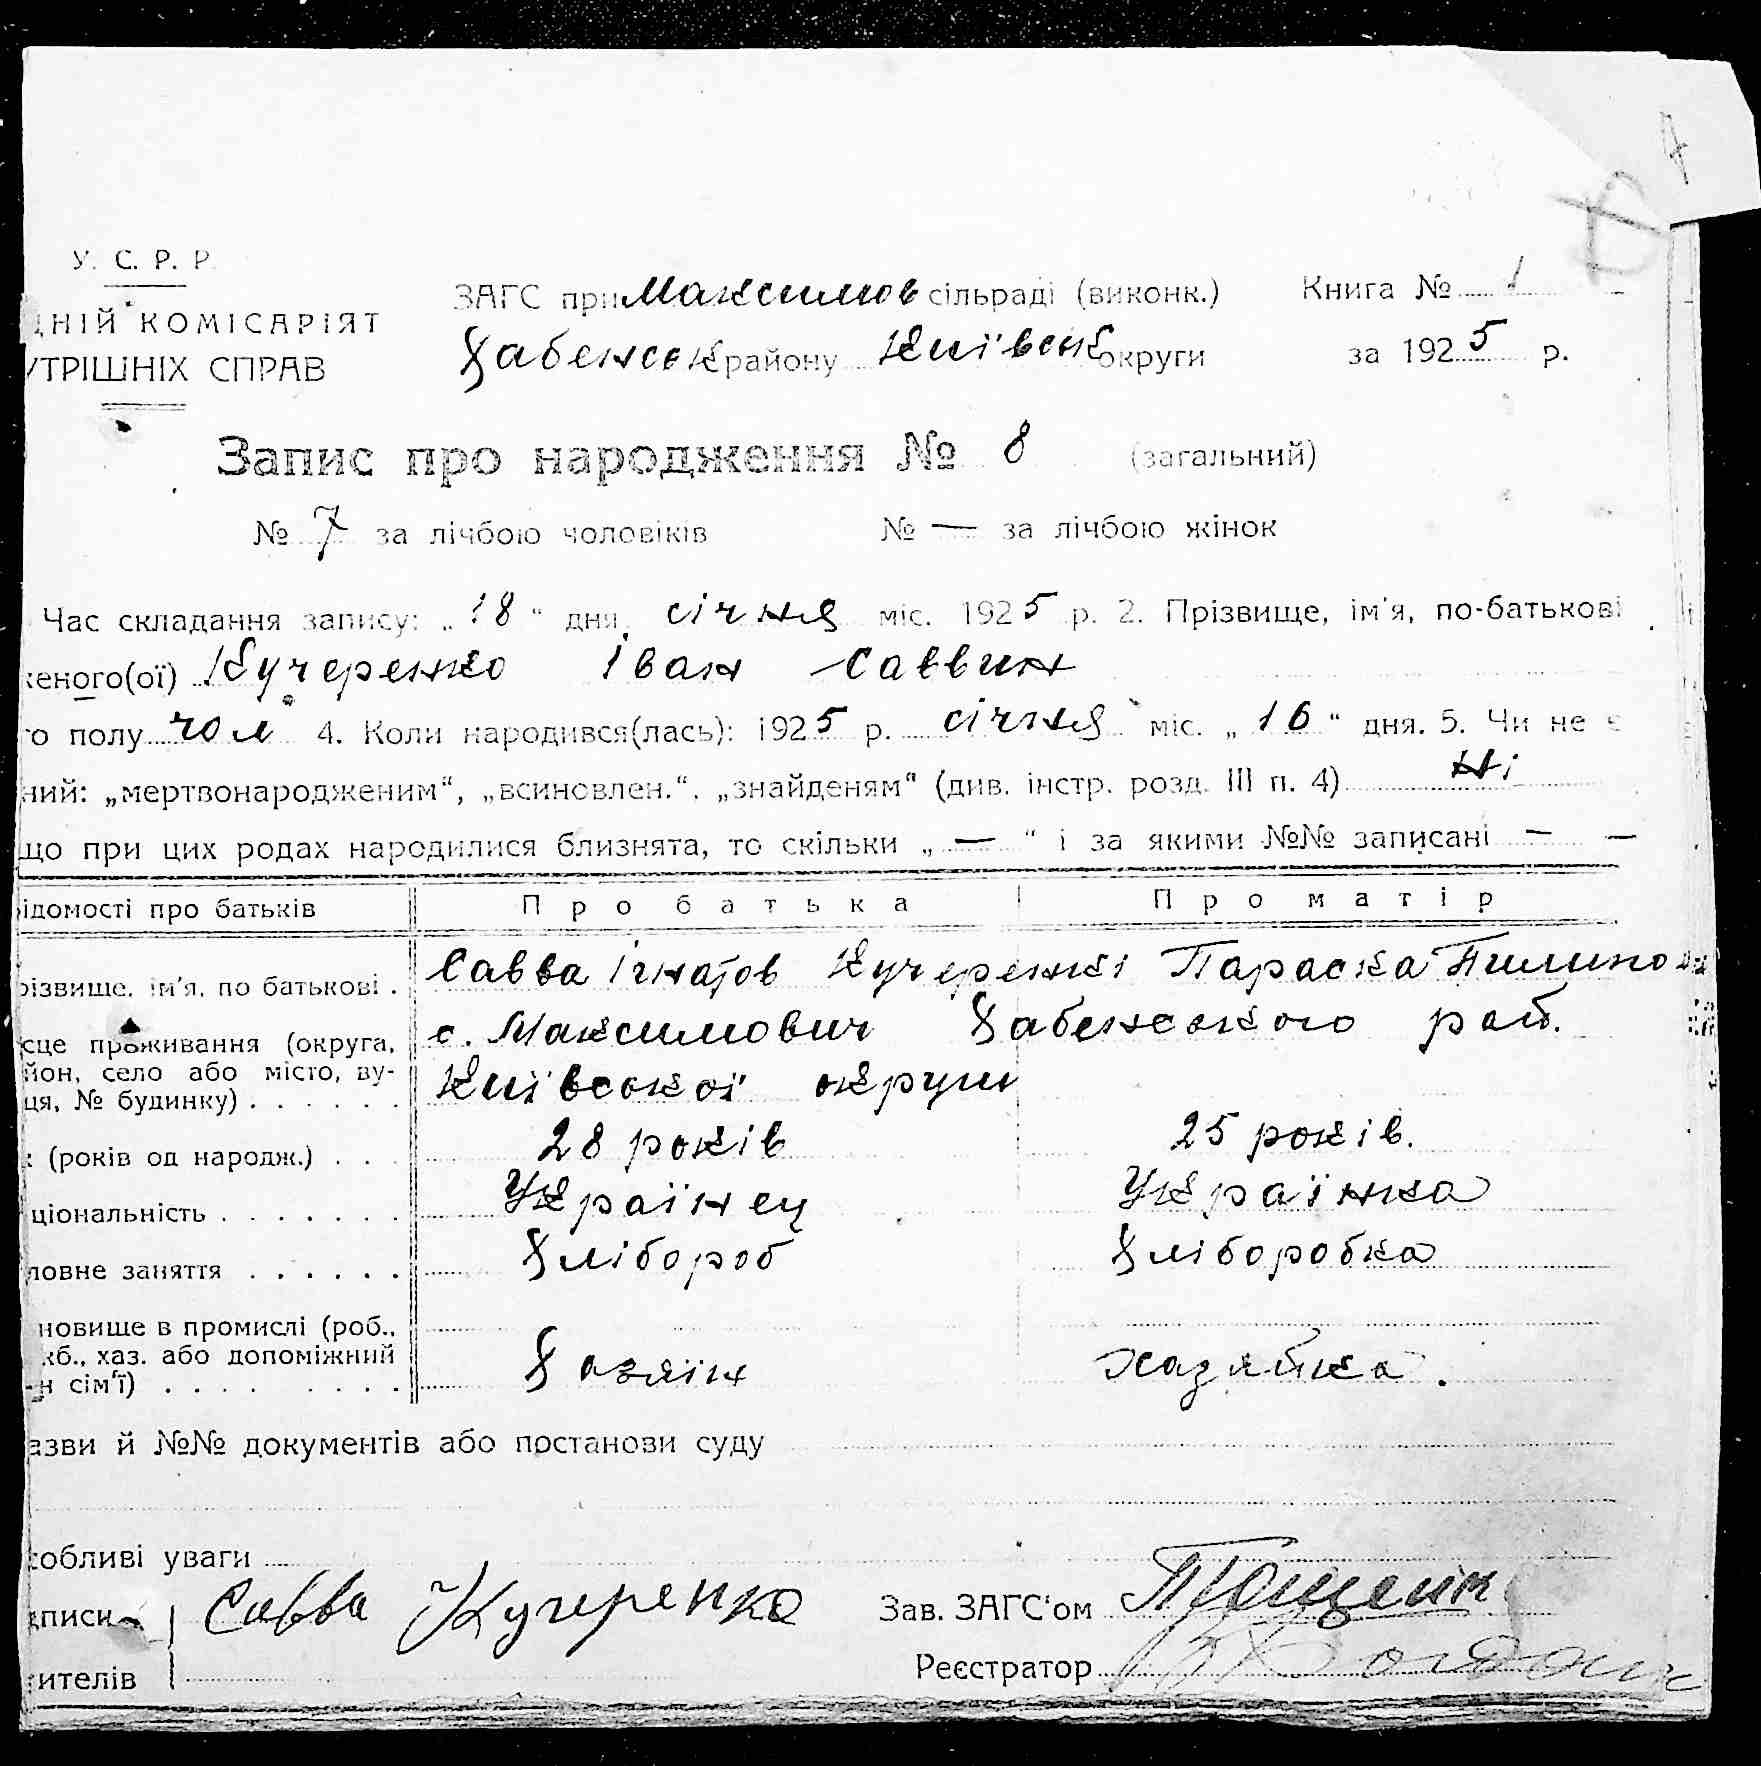 4
У. С. Р. Р.
ДНІЙ КОМІСАРІЯТ
УТРІШНІХ СПРАВ
ЗАГС при Максимов сільраді (виконк.) Книга № 1
Хабенськ району Київськ округи за 1925 р.
Запис про народження № 8 (загальний)
№ 7 за лічбою чоловіків № — за лічбою жінок
Час складання запису: „18“ дня січня міс. 1925 р. 2. Прізвище, ім'я, по-батькові
женого(ої) Кучеренко Іван Саввин
го полу чол 4. Коли народився(лась): 1925 р. січня міс. „16“ дня. 5. Чи не є
ний: „мертвонародженим“, „всиновлен.“, „знайденям“ (див. інстр. розд. III п. 4) Ні
що при цих родах народилися близнята, то скільки „—“ і за якими №№ записані — —
ідомості про батьків Про батька Про матір
різвище, ім'я, по батькові . Савва Ігнатов Кучеренкі Параска Пилипо
сце проживання (округа, с. Максимович Хабенського рай.
йон, село або місто, ву-
ця, № будинку) . . . . . . Київської округи
(років од народж.) . . . 28 років 25 років.
ціональність . . . . . . . Українец Українка
ловне заняття . . . . . . Хлібороб Хліборобка
новище в промислі (роб.,
жб., хаз. або допоміжний Хазяїн хазяйка.
н сім'ї) . . . . . . . .
азви й №№ документів або постанови суду
собливі уваги
дписи Савва Кучеренко Зав. ЗАГС'ом
вителів Реєстратор